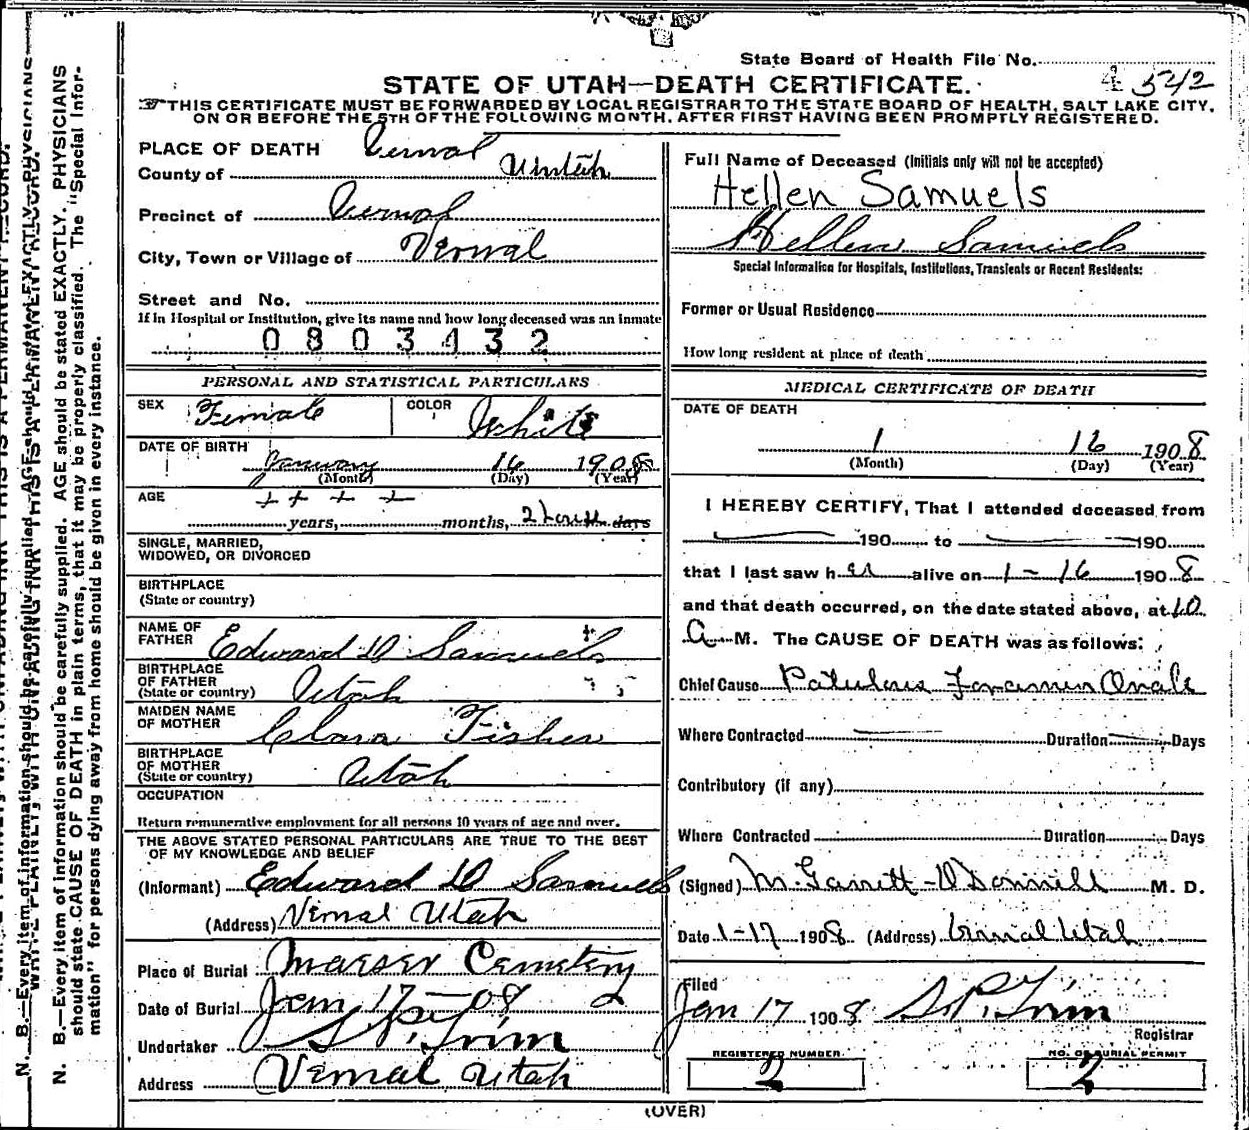 State Board of Health File No. 4 542
STATE OF UTAH—DEATH CERTIFICATE.
THIS CERTIFICATE MUST BE FORWARDED BY LOCAL REGISTRAR TO THE STATE BOARD OF HEALTH, SALT LAKE CITY,
ON OR BEFORE THE 5TH OF THE FOLLOWING MONTH, AFTER FIRST HAVING BEEN PROMPTLY REGISTERED.
PLACE OF DEATH Vernal
County of Uintah
Precinct of Vernal
City, Town or Village of Vernal
Street and No.
If in Hospital or Institution, give its name and how long deceased was an inmate
0803432
PERSONAL AND STATISTICAL PARTICULARS
SEX Female COLOR White
DATE OF BIRTH
January 16 1908
(Month) (Day) (Year)
AGE
years, months, 2 hours days
SINGLE, MARRIED,
WIDOWED, OR DIVORCED
BIRTHPLACE
(State or country)
NAME OF
FATHER Edward D Samuels
BIRTHPLACE
OF FATHER
(State or country) Utah
MAIDEN NAME
OF MOTHER Clara Fisher
BIRTHPLACE
OF MOTHER
(State or country) Utah
OCCUPATION
Return remunerative employment for all persons 10 years of age and over.
THE ABOVE STATED PERSONAL PARTICULARS ARE TRUE TO THE BEST
OF MY KNOWLEDGE AND BELIEF
(Informant) Edward D Samuels
(Address) Vernal Utah
Place of Burial Maeser Cemetery
Date of Burial Jan 17-08
Undertaker S P Trim
Address Vernal Utah
Full Name of Deceased (Initials only will not be accepted)
Hellen Samuels
Hellen Samuels
Special Information for Hospitals, Institutions, Transients or Recent Residents:
Former or Usual Residence
How long resident at place of death
MEDICAL CERTIFICATE OF DEATH
DATE OF DEATH
1 16 1908
(Month) (Day) (Year)
I HEREBY CERTIFY, That I attended deceased from
190 to 190
that I last saw her alive on 1-16 1908
and that death occurred, on the date stated above, at 10
A M. The CAUSE OF DEATH was as follows:
Chief Cause Patulous Foramen Ovale
Where Contracted Duration Days
Contributory (if any)
Where Contracted Duration Days
(Signed) M. Garrett-O'Donnell M. D.
Date 1-17 1908 (Address) Vernal Utah
Filed
Jan 17 1908 S. P. Trim
Registrar
REGISTERED NUMBER
2
NO. OF BURIAL PERMIT
2
(OVER)
N. B.—Every item of information should be carefully supplied. AGE should be stated EXACTLY. PHYSICIANS
should state CAUSE OF DEATH in plain terms, that it may be properly classified. The "Special Infor-
mation" for persons dying away from home should be given in every instance.